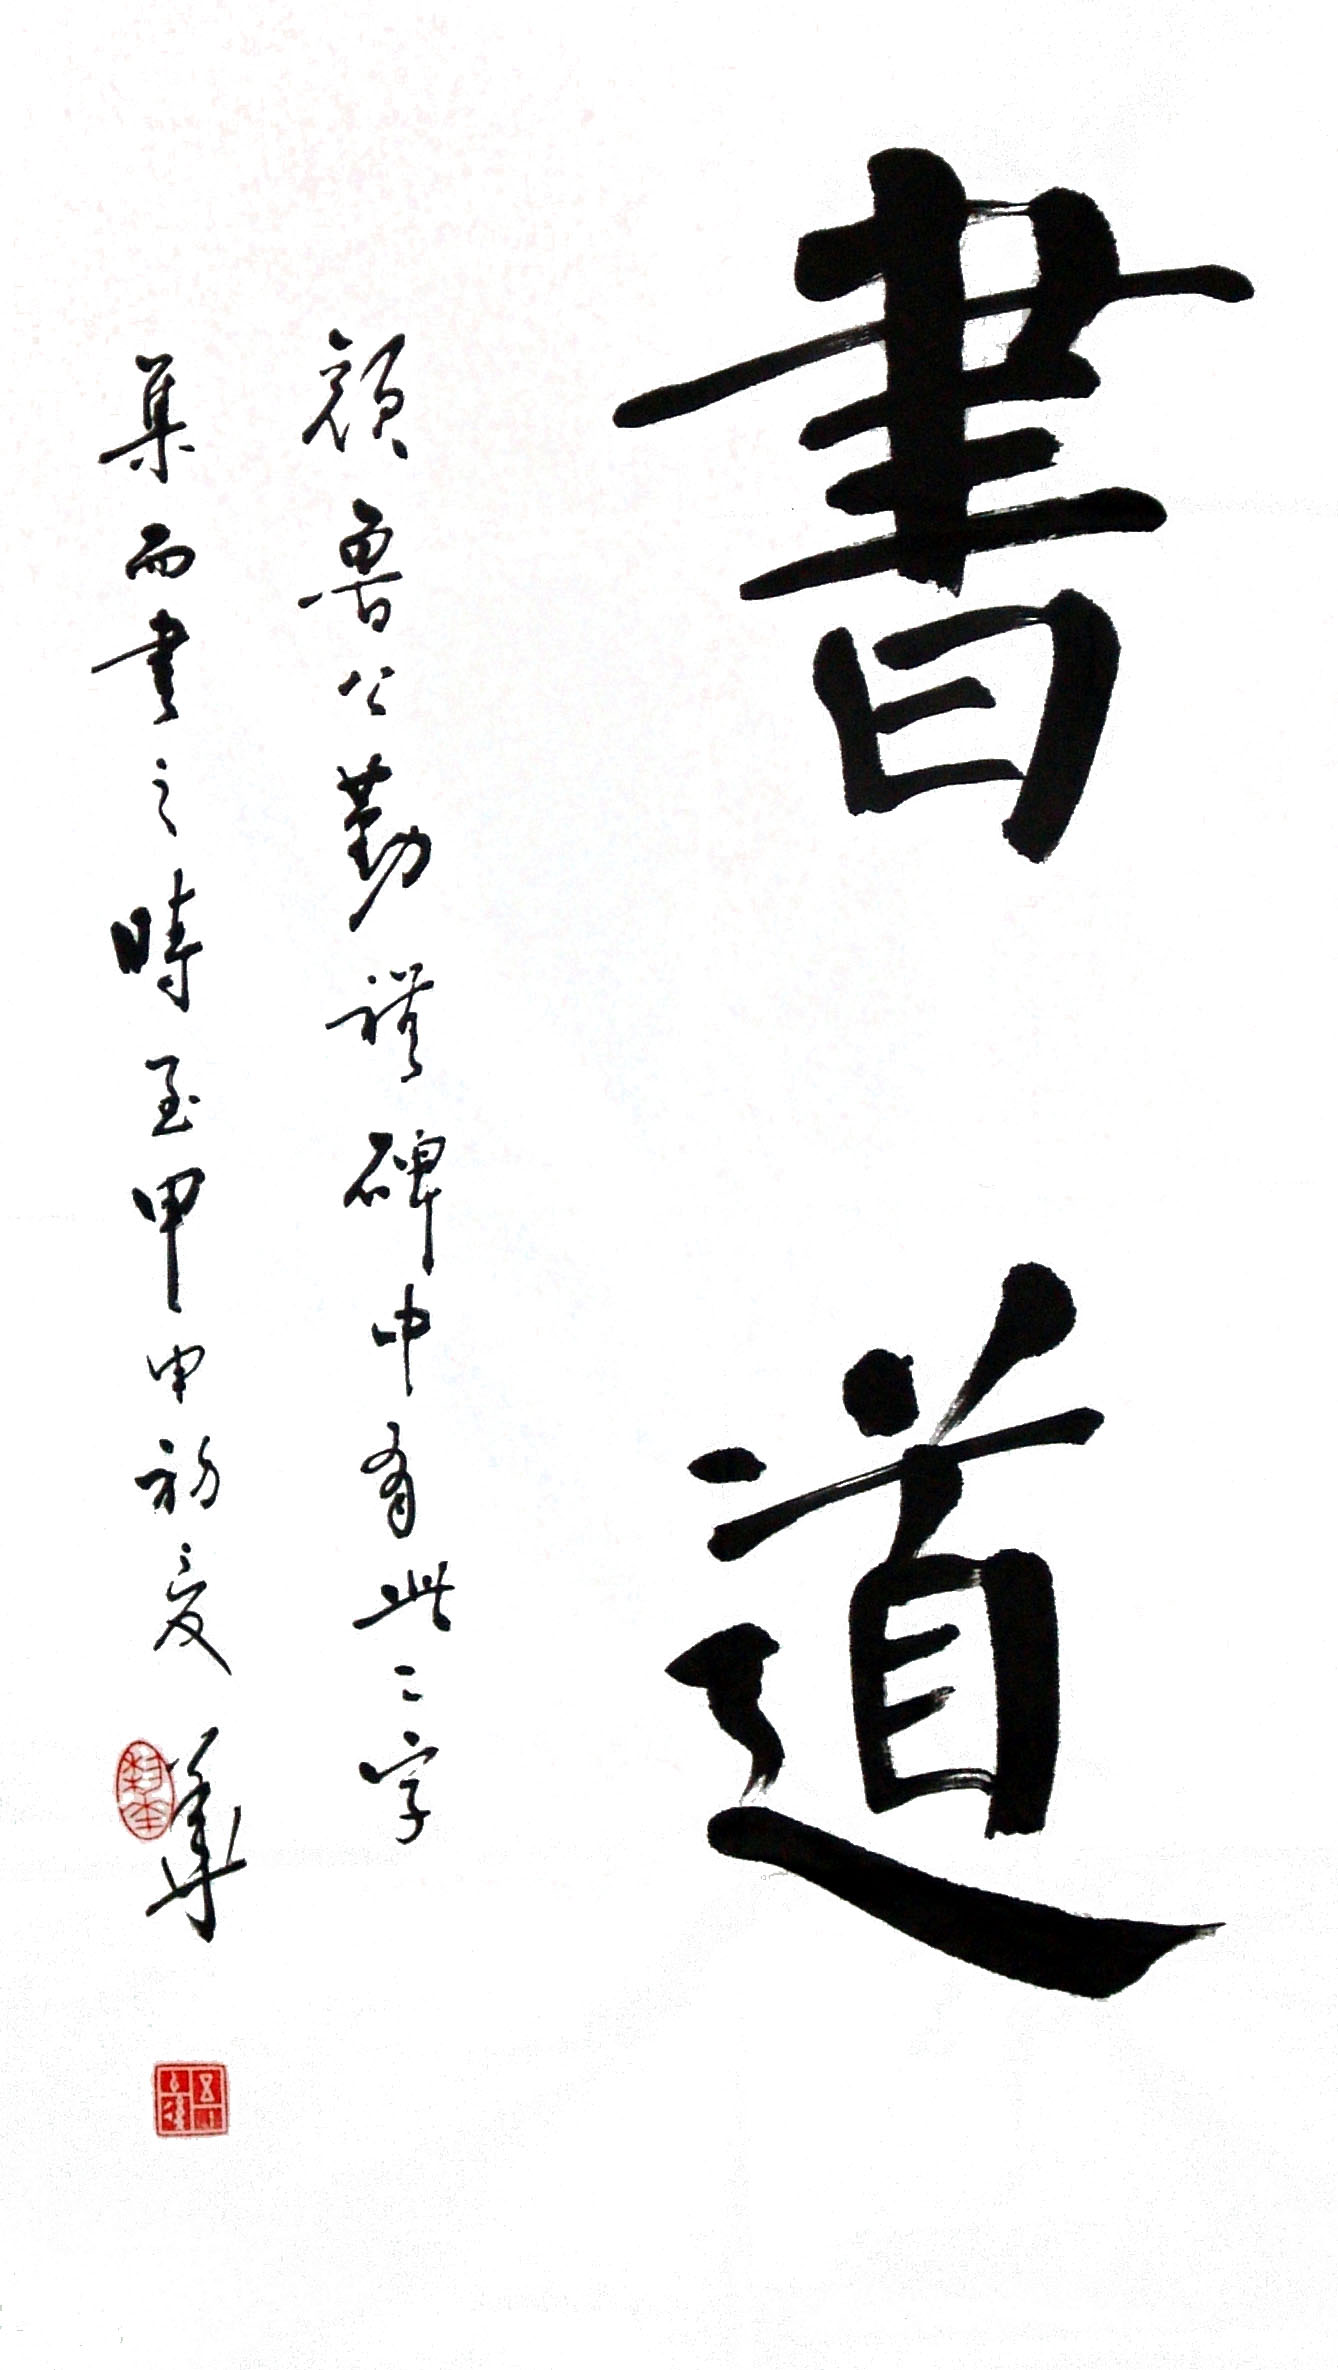 書道
顏魯公勤禮碑中有此二字
集而書之時至甲申初夏 華